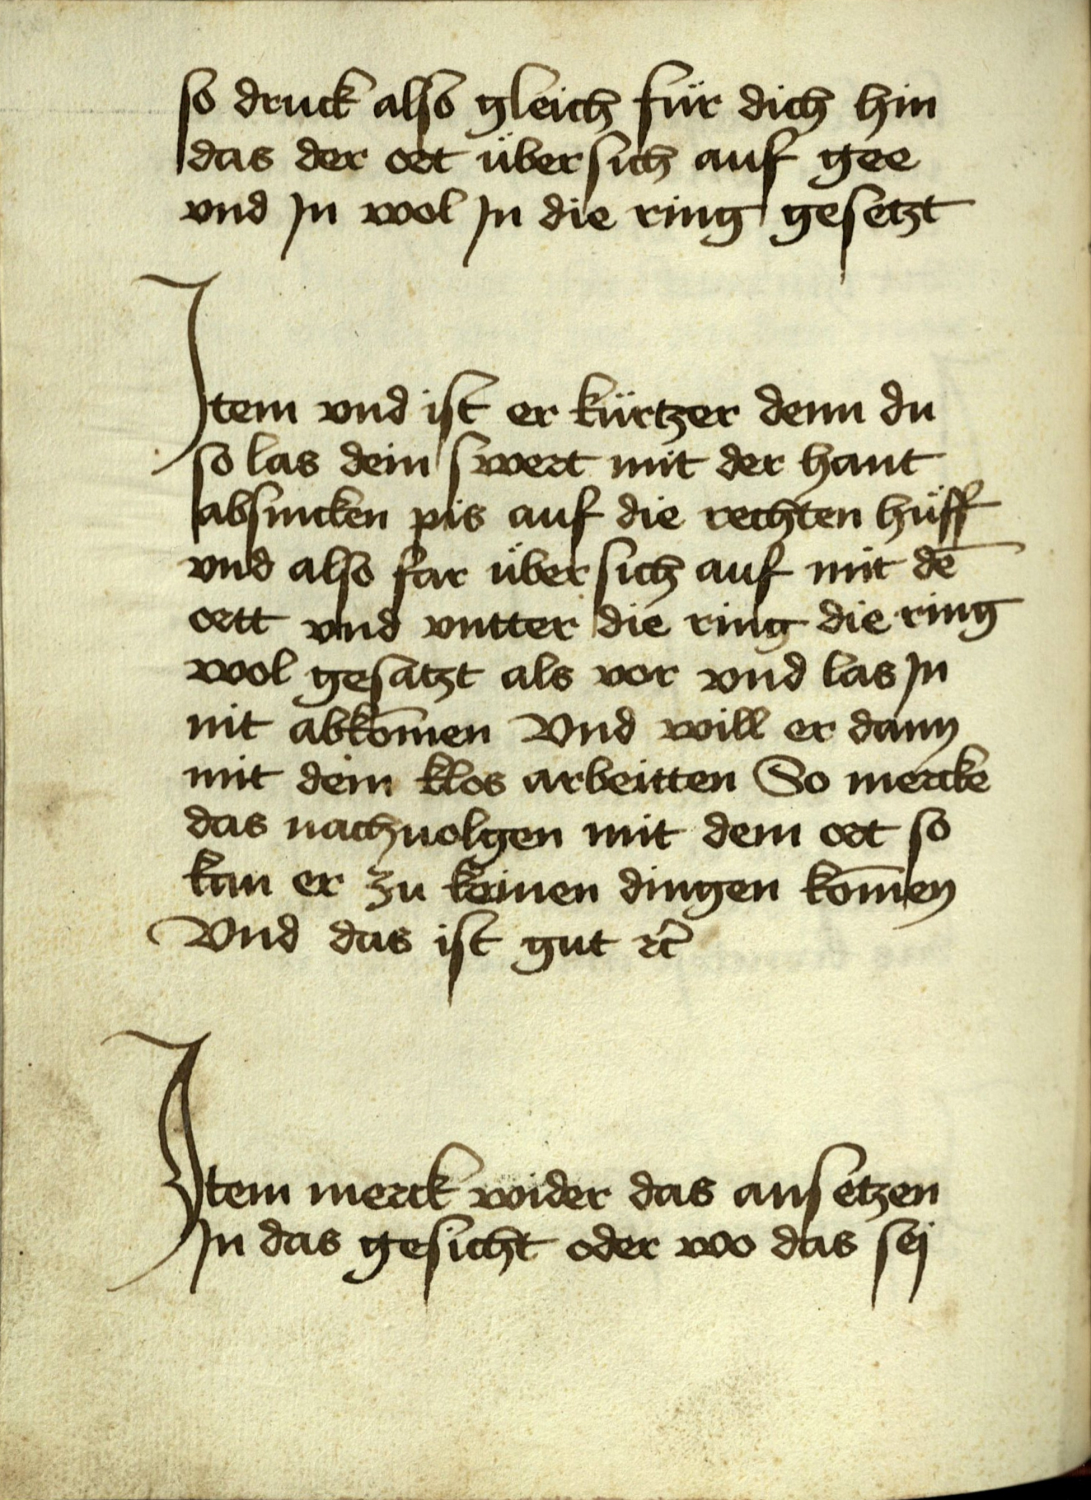 so druck also gleich für dich hin
das der ort über sich auf gee
vnd Jn wol Jn die ring gesetzt
Jtem vnd ist er kürtzer denn du
so las dein swert mit der hant
absincken pis auf die rechten hüff
vnd also far über sich auf mit dē
ortt vnd vntter die ring die ring
wol gesatzt als vor vnd las Jn
nit abkōmen Vnd will er dann
mit dem klos arbeitten So mercke
das nachuolgen mit dem ort so
kan er zu keinen dingen kōmen
Vnd das ist gut ꝛc̄
Jtem merck wider das ansetzen
Jn das gesicht oder wo das sej